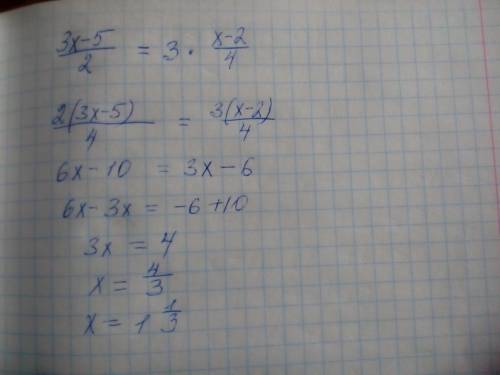 (3x-5)/2 = 3 · (x-2)/4
2(3x-5)/4 = 3(x-2)/4
6x-10 = 3x-6
6x-3x = -6+10
3x = 4
x = 4/3
x = 1 1/3